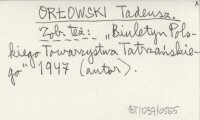 ORŁOWSKI Tadeusz.
Zob. też: „Biuletyn Pols-
kiego Towarzystwa Tatrzańskie-
go" 1947 (autor).